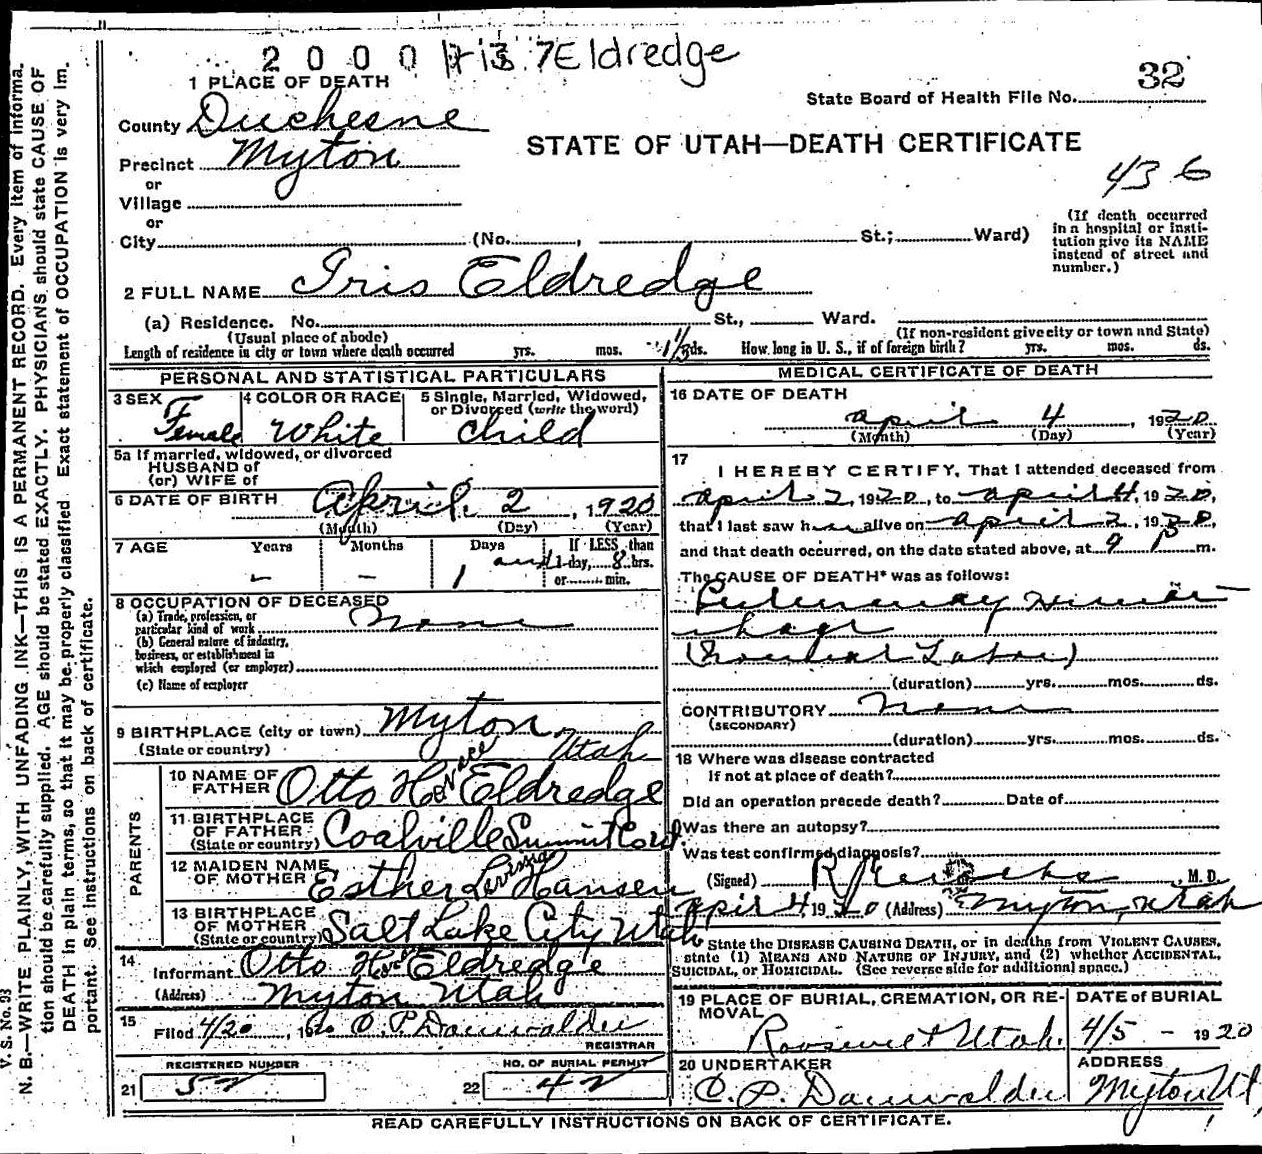 2 0 0 0 1 7 Eldredge
32
1 PLACE OF DEATH
State Board of Health File No.
County Duchesne
STATE OF UTAH—DEATH CERTIFICATE
Precinct Myton
436
or
Village
or
City (No. , St.; Ward)
(If death occurred
in a hospital or insti-
tution give its NAME
instead of street and
number.)
2 FULL NAME Iris Eldredge
(a) Residence. No. St., Ward.
(Usual place of abode) (If non-resident give city or town and State)
Length of residence in city or town where death occurred yrs. mos. 1 1/3 ds. How long in U. S., if of foreign birth? yrs. mos. ds.
PERSONAL AND STATISTICAL PARTICULARS
3 SEX 4 COLOR OR RACE 5 Single, Married, Widowed,
or Divorced (write the word)
Female White Child
5a If married, widowed, or divorced
HUSBAND of
(or) WIFE of
6 DATE OF BIRTH April 2, 1920
(Month) (Day) (Year)
7 AGE Years Months Days If LESS than
- - 1 and 1 day, 8 hrs.
or min.
8 OCCUPATION OF DECEASED
(a) Trade, profession, or
particular kind of work None
(b) General nature of industry,
business, or establishment in
which employed (or employer)
(c) Name of employer
9 BIRTHPLACE (city or town) Myton,
(State or country) Utah
PARENTS
10 NAME OF
FATHER Otto H. Eldredge
11 BIRTHPLACE
OF FATHER
(State or country) Coalville Summit Co
12 MAIDEN NAME
OF MOTHER Esther Levissia Hansen
13 BIRTHPLACE
OF MOTHER
(State or country) Salt Lake City Utah
14
Informant Otto Eldredge
(Address) Myton Utah
15
Filed 4/20, 1920 O. P. Danwalder
REGISTRAR
REGISTERED NUMBER NO. OF BURIAL PERMIT
21 52 22 42
MEDICAL CERTIFICATE OF DEATH
16 DATE OF DEATH
April 4, 1920
(Month) (Day) (Year)
17
I HEREBY CERTIFY, That I attended deceased from
April 2, 1920, to April 4, 1920,
that I last saw her alive on April 2, 1920,
and that death occurred, on the date stated above, at 9 P m.
The CAUSE OF DEATH* was as follows:
Pulmonary Hemorr
hage
Labor)
(duration) yrs. mos. ds.
CONTRIBUTORY None
(SECONDARY)
(duration) yrs. mos. ds.
18 Where was disease contracted
if not at place of death?
Did an operation precede death? Date of
Was there an autopsy?
Was test confirmed diagnosis?
(Signed) , M. D.
April 4 1920 (Address) Myton, Utah
State the DISEASE CAUSING DEATH, or in deaths from VIOLENT CAUSES,
state (1) MEANS AND NATURE OF INJURY, and (2) whether ACCIDENTAL,
SUICIDAL, or HOMICIDAL. (See reverse side for additional space.)
19 PLACE OF BURIAL, CREMATION, OR RE-
MOVAL
Roosevelt Utah.
DATE of BURIAL
4/5 - 1920
20 UNDERTAKER
O. P. Danwalder
ADDRESS
Myton Ut,
READ CAREFULLY INSTRUCTIONS ON BACK OF CERTIFICATE.
V. S. No. 93
N. B.—WRITE PLAINLY, WITH UNFADING INK—THIS IS A PERMANENT RECORD. Every item of informa-
tion should be carefully supplied. AGE should be stated EXACTLY. PHYSICIANS should state CAUSE OF
DEATH in plain terms, so that it may be properly classified. Exact statement of OCCUPATION is very im-
portant. See instructions on back of certificate.